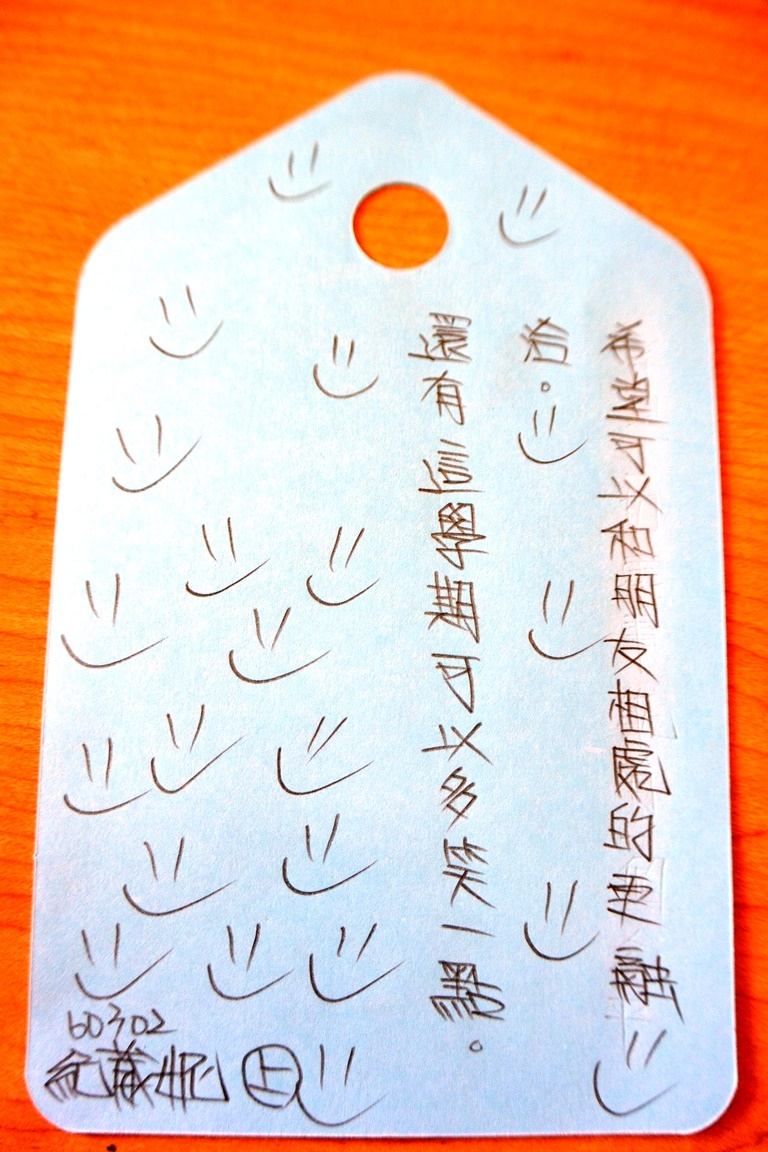 希望可以和朋友相處的更融
洽。
還有這學期可以多笑一點。
60302
紀葳妮 上